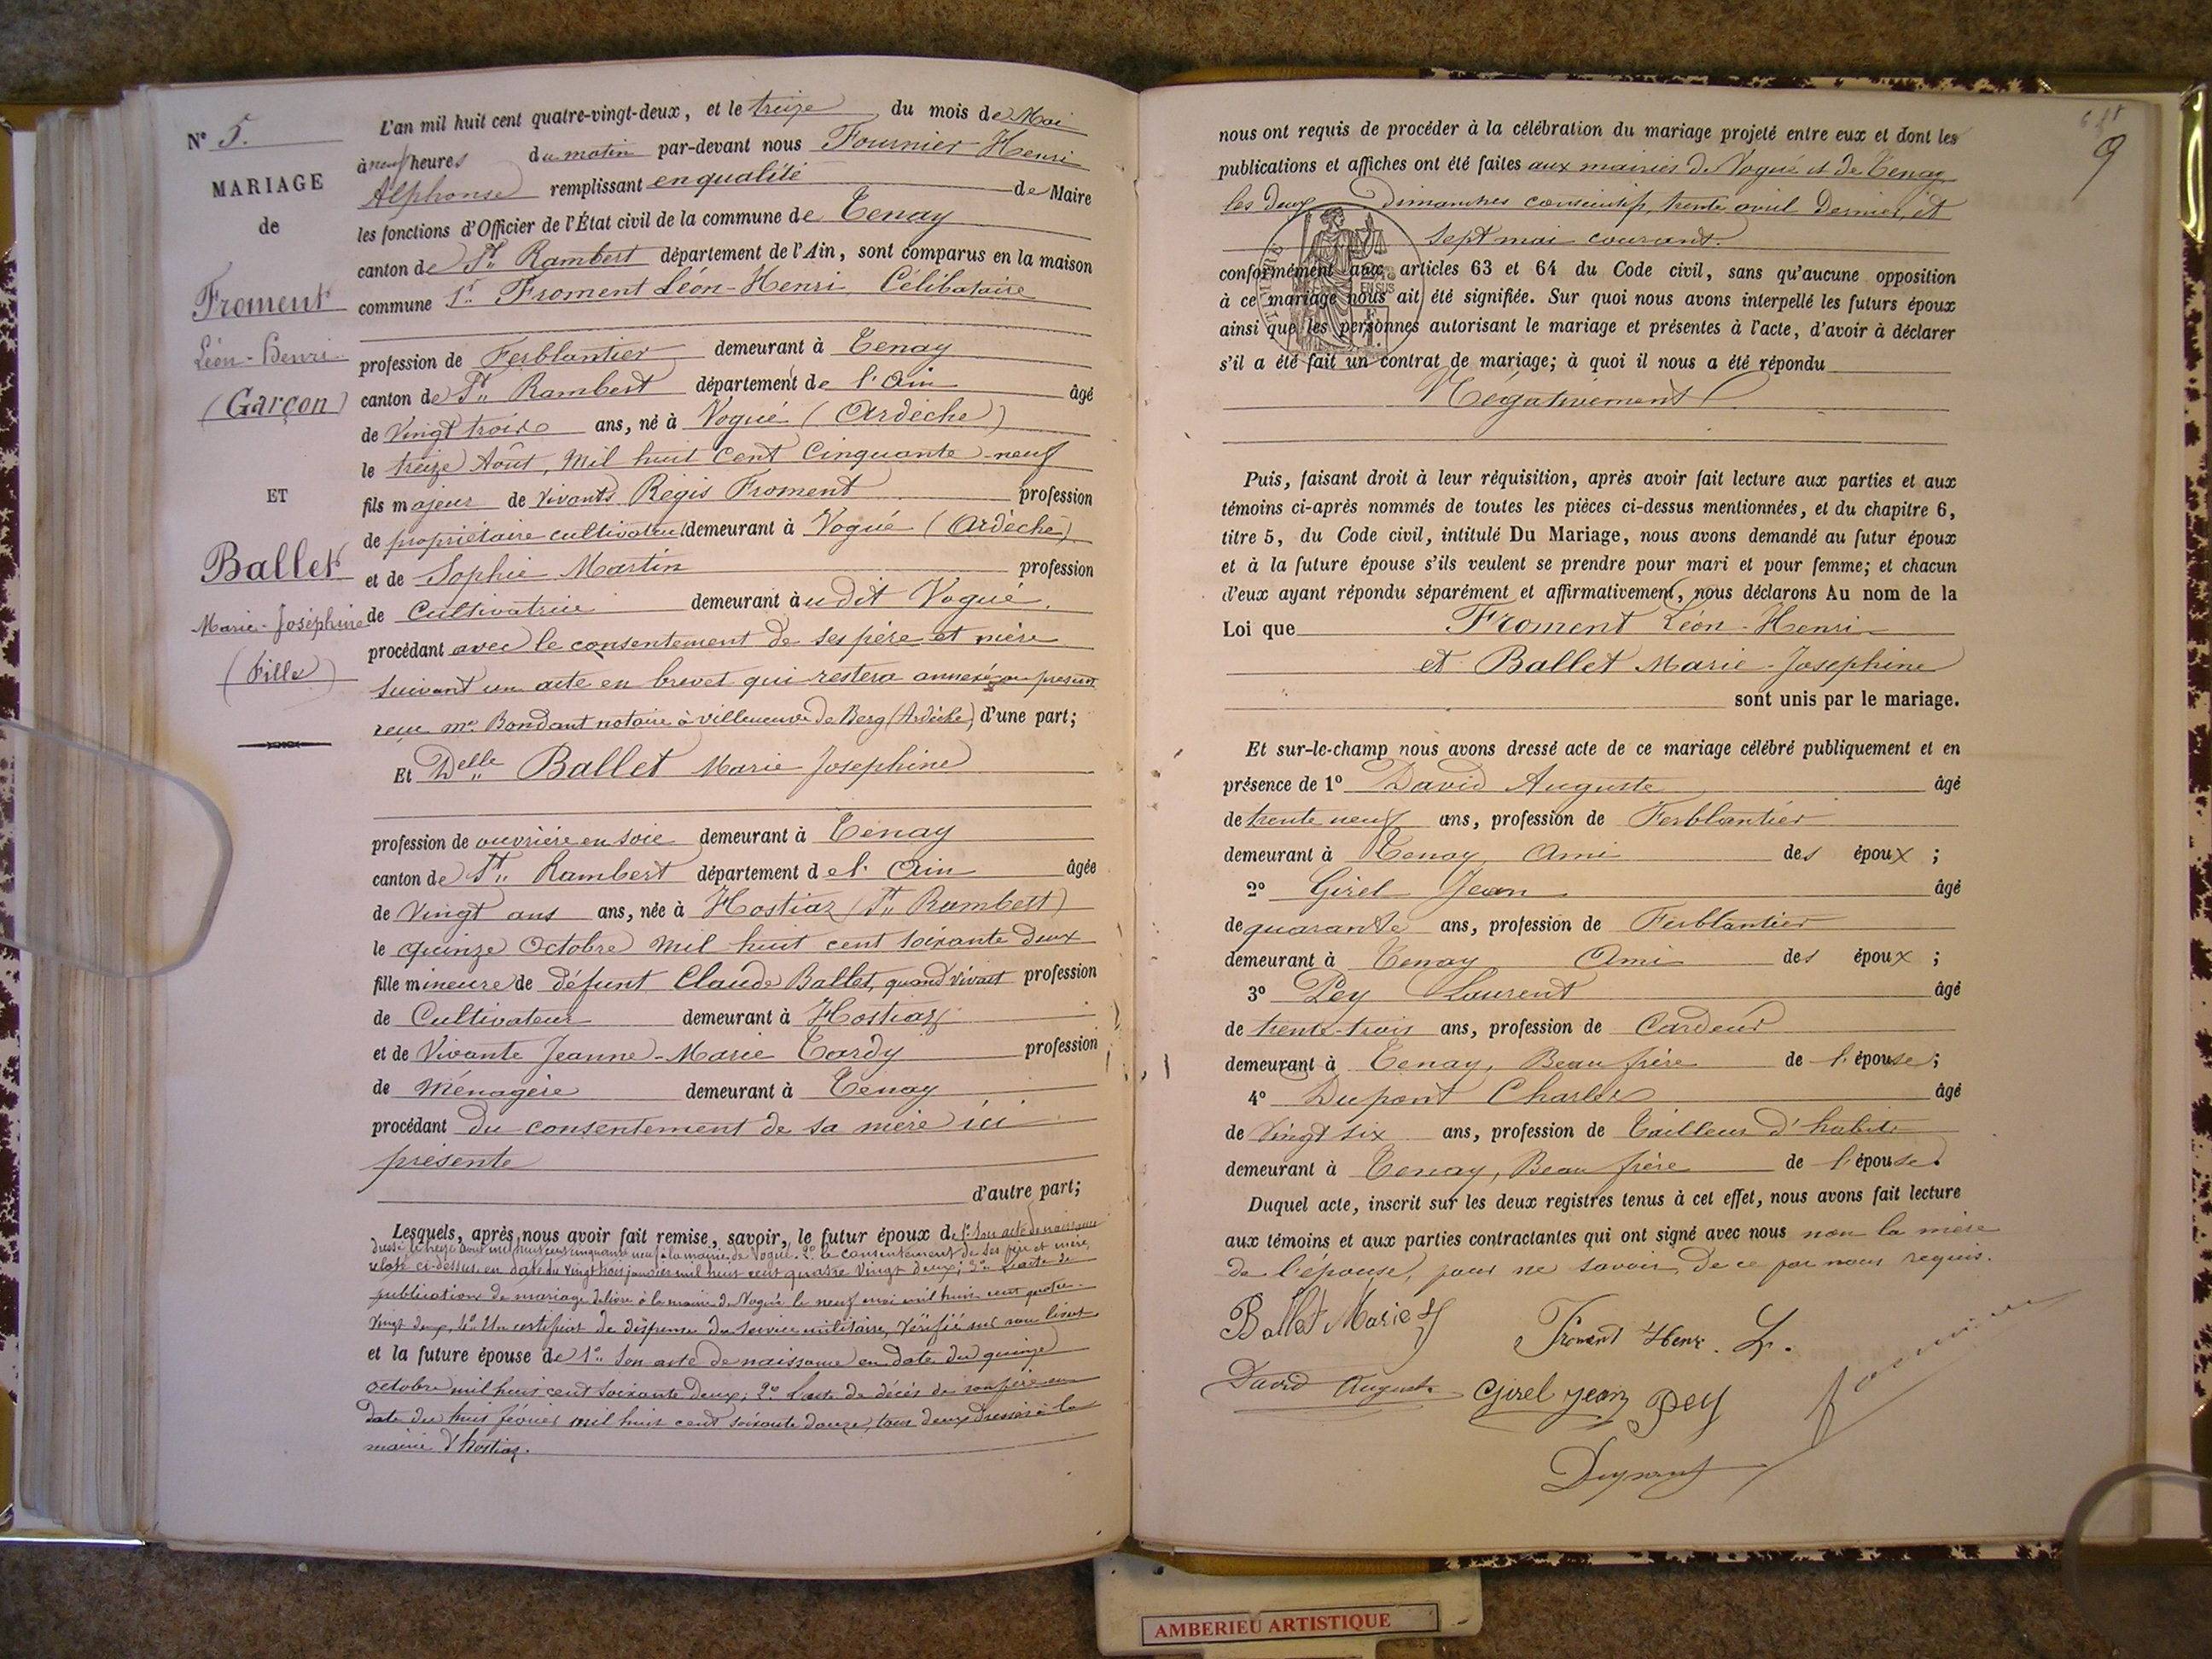 N° 5.
MARIAGE
de
Froment
Léon-Henri
(Garçon)
ET
Ballet
Marie-Joséphine
(Fille)
L'an mil huit cent quatre-vingt-deux, et le treize du mois de Mai
à neuf heures du matin par-devant nous Fournier Henri
Alphonse remplissant en qualité de Maire
les fonctions d'Officier de l'État civil de la commune de Tenay
canton de St Rambert département de l'Ain, sont comparus en la maison
commune 1° Froment Léon-Henri, Célibataire
profession de Ferblantier demeurant à Tenay
canton de St Rambert département de l'Ain âgé
de Vingt trois ans, né à Vogué (Ardèche)
le treize Août, Mil huit Cent Cinquante-neuf
fils majeur de vivants Régis Froment profession
de propriétaire cultivateur demeurant à Vogué (Ardèche)
et de Sophie Martin profession
de Cultivatrice demeurant à udit Vogué
procédant avec le consentement de ses père et mère
suivant un acte en brevet qui restera annexé au présent
reçu me Bondant notaire à villeneuve de Berg (Ardèche) d'une part;
Et Delle Ballet Marie Josephine
profession de ouvrière en soie demeurant à Tenay
canton de St Rambert département de l'Ain âgée
de Vingt ans ans, née à Hostiaz (St Rambert)
le quinze Octobre mil huit cent soixante deux
fille mineure de défunt Claude Ballet, quand vivait profession
de Cultivateur demeurant à Hostiaz
et de Vivante Jeanne-Marie Tardy profession
de Ménagère demeurant à Tenay
procédant du consentement de sa mère ici
présente
d'autre part;
Lesquels, après nous avoir fait remise, savoir, le futur époux de 1° Son acte de naissance
dressé le treize août mil huit cent cinquante neuf à la mairie de Vogué. 2° le consentement de ses père et mère,
relaté ci-dessus en date du vingt trois janvier mil huit cent quatre vingt deux; 3° l'acte de
publication de mariage délivré à la mairie de Vogué le neuf mai mil huit cent quatre-
vingt deux, 4° Un certificat de dispense du service militaire, vérifié sur son livret
et la future épouse de 1° Son acte de naissance en date du quinze
octobre mil huit cent soixante deux; 2° l'acte de décès de son père en
date du huit février mil huit cent soixante douze, tous deux dressés à la
mairie d'hostiaz.
9
nous ont requis de procéder à la célébration du mariage projeté entre eux et dont les
publications et affiches ont été faites aux mairies de Vogué et de Tenay
les deux Dimanches consécutifs, trente avril dernier, et
sept mai courant.
conformément aux articles 63 et 64 du Code civil, sans qu'aucune opposition
à ce mariage nous ait été signifiée. Sur quoi nous avons interpellé les futurs époux
ainsi que les personnes autorisant le mariage et présentes à l'acte, d'avoir à déclarer
s'il a été fait un contrat de mariage; à quoi il nous a été répondu
Négativement
Puis, faisant droit à leur réquisition, après avoir fait lecture aux parties et aux
témoins ci-après nommés de toutes les pièces ci-dessus mentionnées, et du chapitre 6,
titre 5, du Code civil, intitulé Du Mariage, nous avons demandé au futur époux
et à la future épouse s'ils veulent se prendre pour mari et pour femme; et chacun
d'eux ayant répondu séparément et affirmativement, nous déclarons Au nom de la
Loi que Froment Léon-Henri
et Ballet Marie-Josephine
sont unis par le mariage.
Et sur-le-champ nous avons dressé acte de ce mariage célébré publiquement et en
présence de 1° David Auguste âgé
de trente neuf ans, profession de Ferblantier
demeurant à Tenay Ami des époux ;
2° Girel Jean âgé
de quarante ans, profession de Ferblantier
demeurant à Tenay Ami des époux ;
3° Pey Laurent âgé
de trente-trois ans, profession de Cardeur
demeurant à Tenay, Beau frère de l'épouse;
4° Dupont Charles âgé
de Vingt six ans, profession de Tailleur d'habits
demeurant à Tenay, Beau frère de l'épouse.
Duquel acte, inscrit sur les deux registres tenus à cet effet, nous avons fait lecture
aux témoins et aux parties contractantes qui ont signé avec nous non la mère
de l'épouse, pour ne savoir, de ce par nous requis.
Ballet Marie J Froment Henri. L.
David Auguste Girel Jean Pey Fournier
Dupont
AMBERIEU ARTISTIQUE